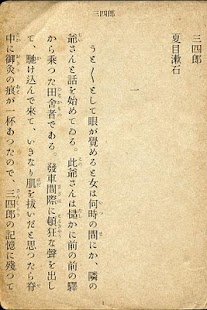 三四郎
三四郎
夏目漱石
一
うと〱として眼が覺めると女は何時の間にか、隣の
爺さんと話を始めてゐる。此爺さんは慥かに前の前の驛
から乘つた田舍者である。發車間際に頓狂な聲を出し
て、馳け込んで來て、いきなり肌を拔いだと思つたら脊
中に御灸の痕が一杯あつたので、三四郎の記憶に殘つて